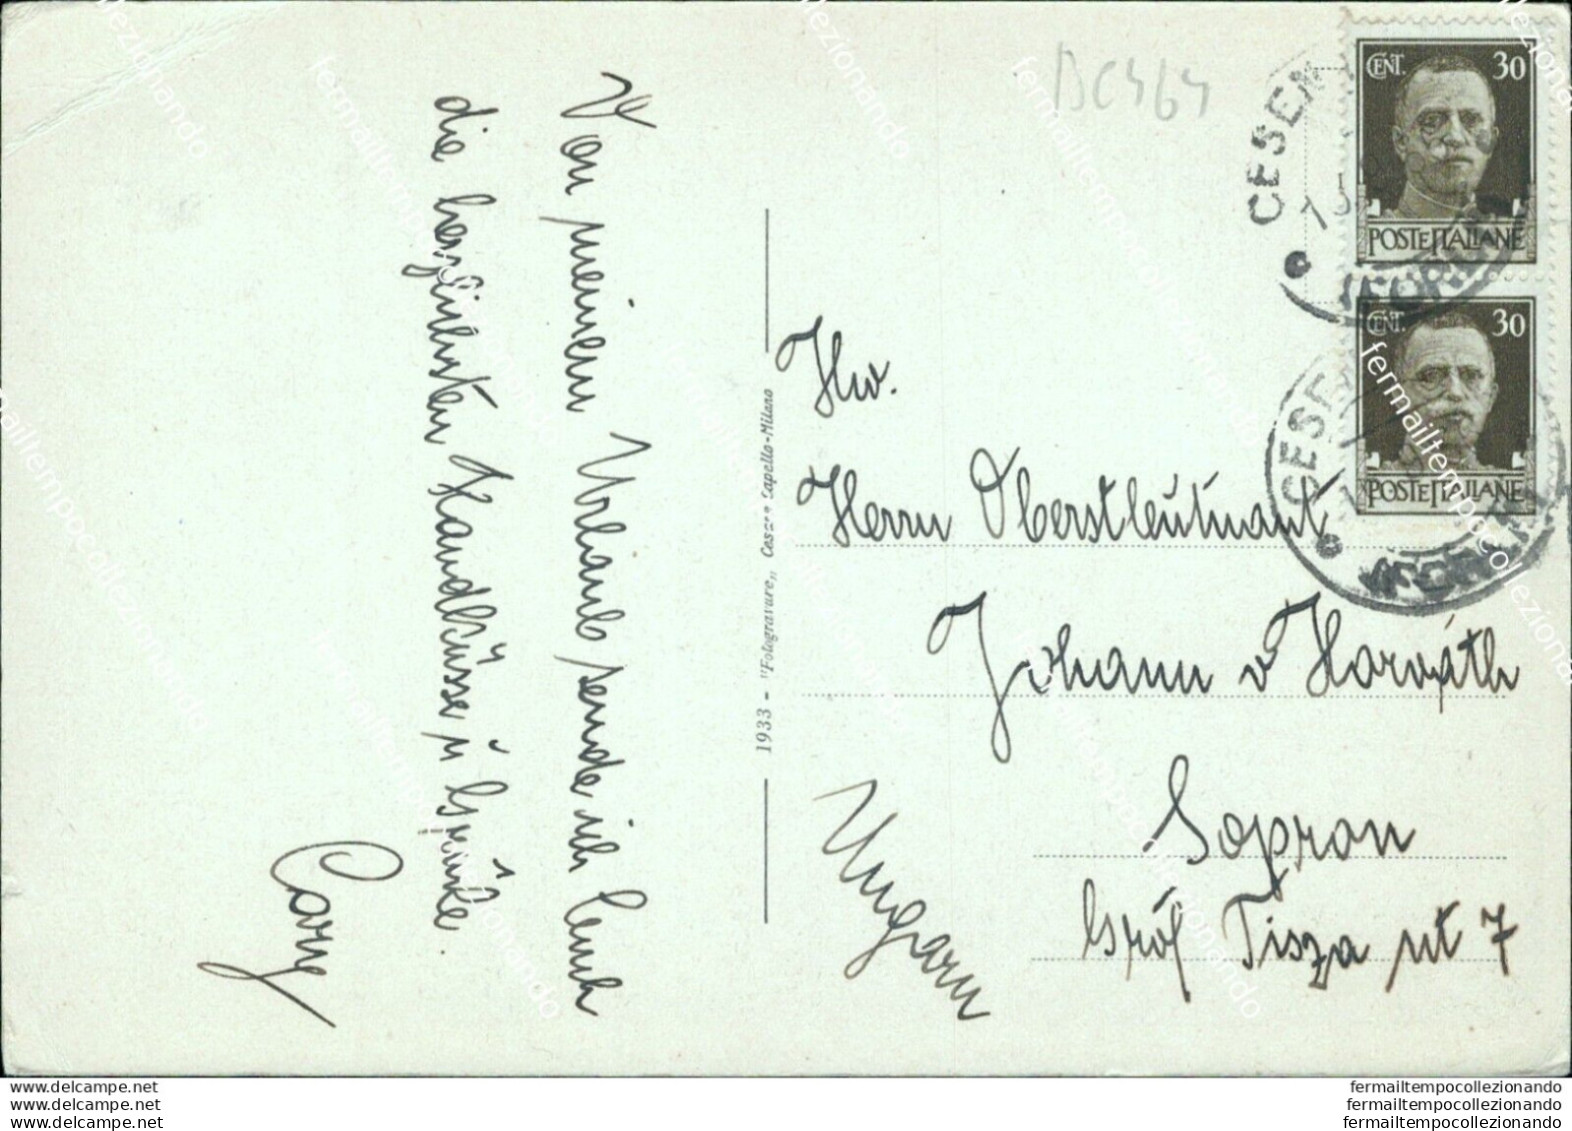 BC464
CENT. 30
POSTE ITALIANE
CENT. 30
POSTE ITALIANE
CESEN
(FORLI)
CESE
(FORLI)
Von meinem Urlaub sende ich Euch
die herzlichsten Handküsse u Grüße.
Cary
1933 - "Fotogravure„ Cesare Capello-Milano
Hw.
Herrn Oberstleutnant
Johann v Horváth
Sopron
Gróf Tisza ut 7
Ungarn
www.delcampe.net
www.delcampe.net
www.delcampe.net
fermailtempocollezionando
fermailtempocollezionando
fermailtempocollezionando